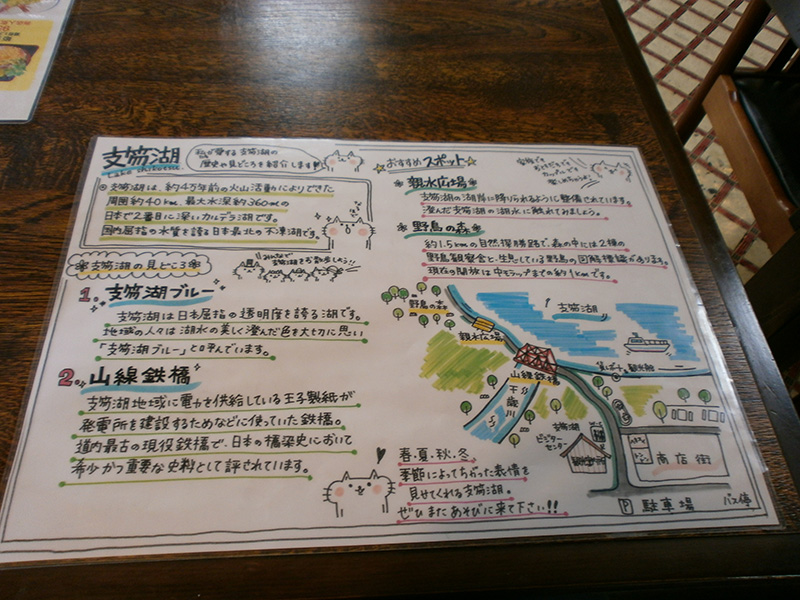 支笏湖
Lake shikotsu
私が愛する支笏湖の
歴史や見どころを紹介します!!
支笏湖は、約4万年前の火山活動によりできた
周囲約40km、最大水深約360mの
日本で2番目に深いカルデラ湖です。
国内屈指の水質を誇る日本最北の不凍湖です。
みんなで
支笏湖をお散歩しよう!!
支笏湖の見どころ
1. 支笏湖ブルー
支笏湖は日本屈指の透明度を誇る湖です。
地域の人々は湖水の美しく澄んだ色を大切に思い
「支笏湖ブルー」と呼んでいます。
2. 山線鉄橋
支笏湖地域に電力を供給している王子製紙が
発電所を建設するためなどに使っていた鉄橋。
道内最古の現役鉄橋で、日本の橋梁史において
希少かつ重要な史料として評されています。
おすすめスポット
親水広場
支笏湖の湖岸に降りられるように整備されています。
澄んだ支笏湖の湖水に触れてみましょう。
野鳥の森
約1.5kmの自然探勝路で、森の中には2種の
野鳥観察舎と生息している野鳥の図解標識があります。
現在の開放は中モラップまでの約1kmです。
野鳥の森
親水広場
支笏湖
山線鉄橋
千歳川
支笏湖
ビジター
センター
商店街
P 駐車場
バス停
春、夏、秋、冬
季節によってちがった表情を
見せてくれる支笏湖。
ぜひまたあそびに来て下さい!!